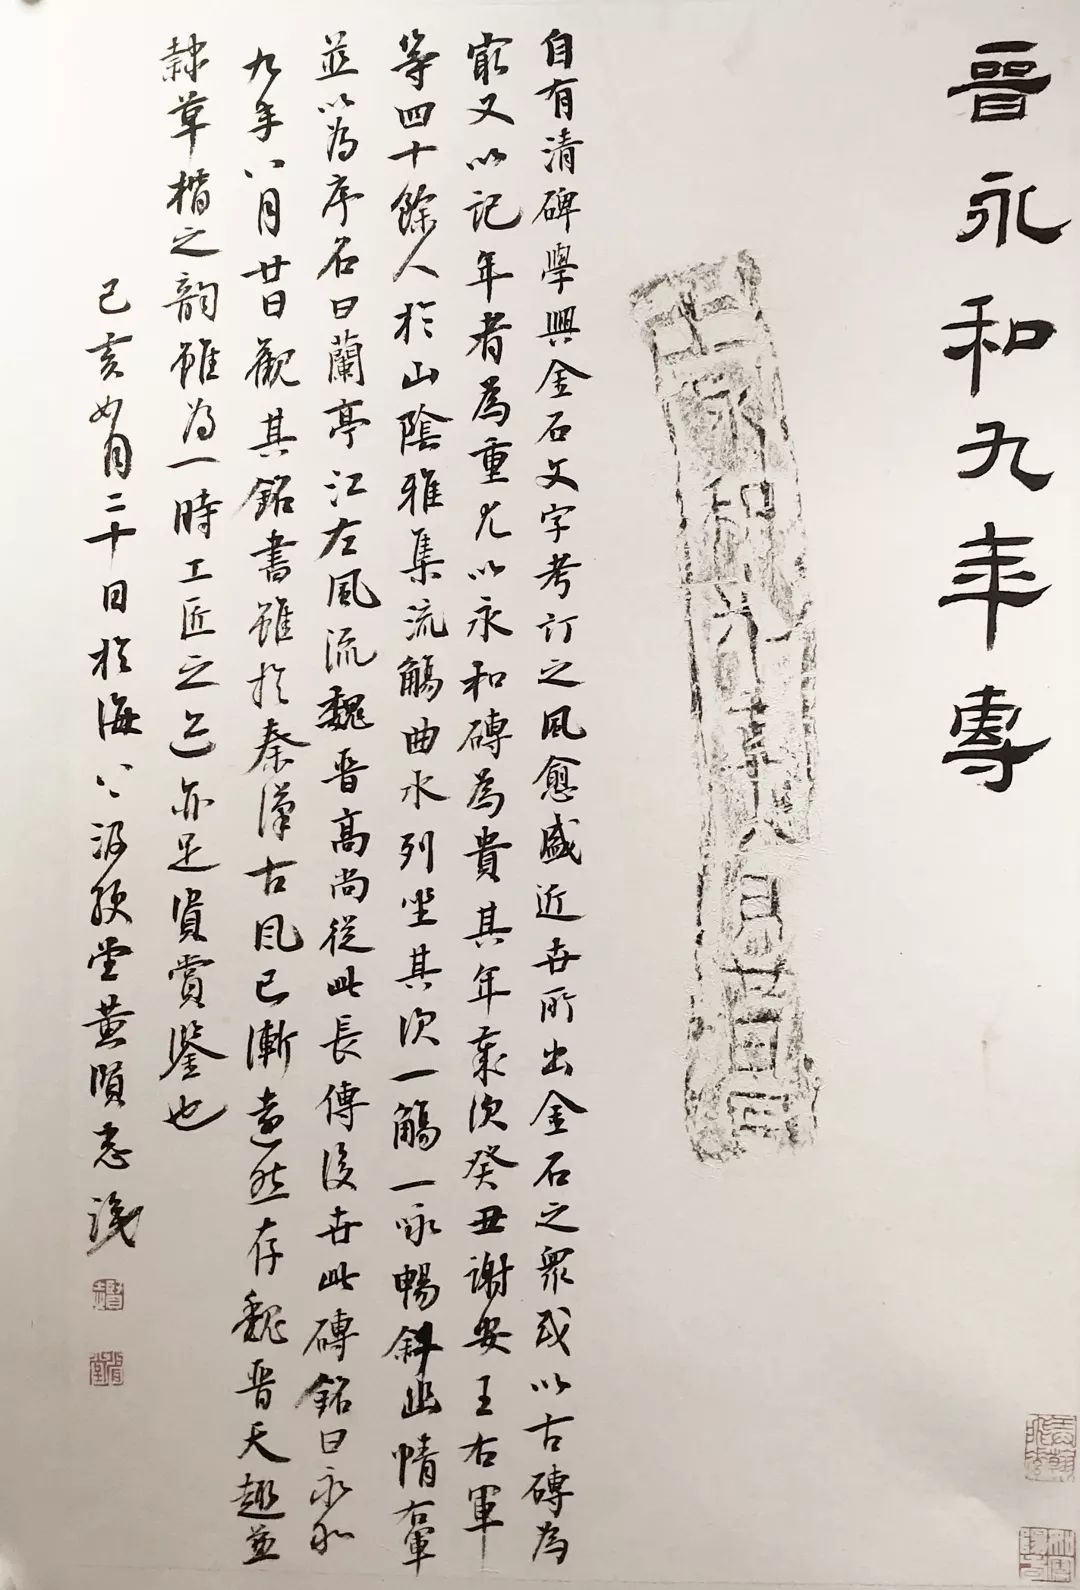 晉永和九年專
永和九年八月廿日
自有清碑學興金石文字考訂之風愈盛近世所出金石之眾或以古磚為
最又以記年者為重尤以永和磚為貴其年歲次癸丑謝安王右軍
等四十餘人於山陰雅集流觴曲水列坐其次一觴一咏暢敘幽情右軍
並以為序名曰蘭亭江左風流魏晉高尚從此長傳後世此磚銘曰永和
九年八月廿日觀其銘書雖於秦漢古風已漸遠然存魏晉天趣並
隸草楷之韵雖為一時工匠之迹亦足資賞鑒也
己亥如月二十日於海上汲綆堂黃頤志識